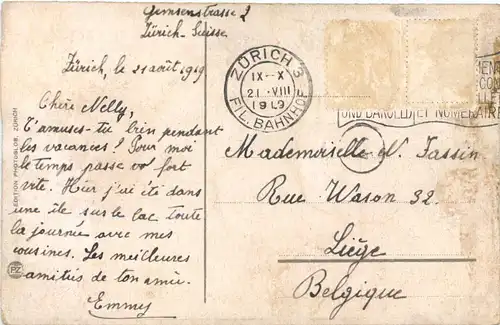 Gemsenstrasse 2
Zürich-Suisse
Zürich, le 21 août 1919
Chère Nelly,
T'amuses-tu bien pendant
les vacances? Pour moi
le temps passe fort
vite. Hier j'ai été dans
une île sur le lac toute
la journée avec mes
cousines. Les meilleures
amitiés de ton amie.
Emmy
EDITION PHOTOGLOB, ZÜRICH
PZ
ZÜRICH 3
IX-X
21.VIII
1919
FIL. BAHNHOF
UND BARGELD
ET NUMÉRAIRE
Mademoiselle N. Fassin
Rue Wason 32.
Liège
Belgique